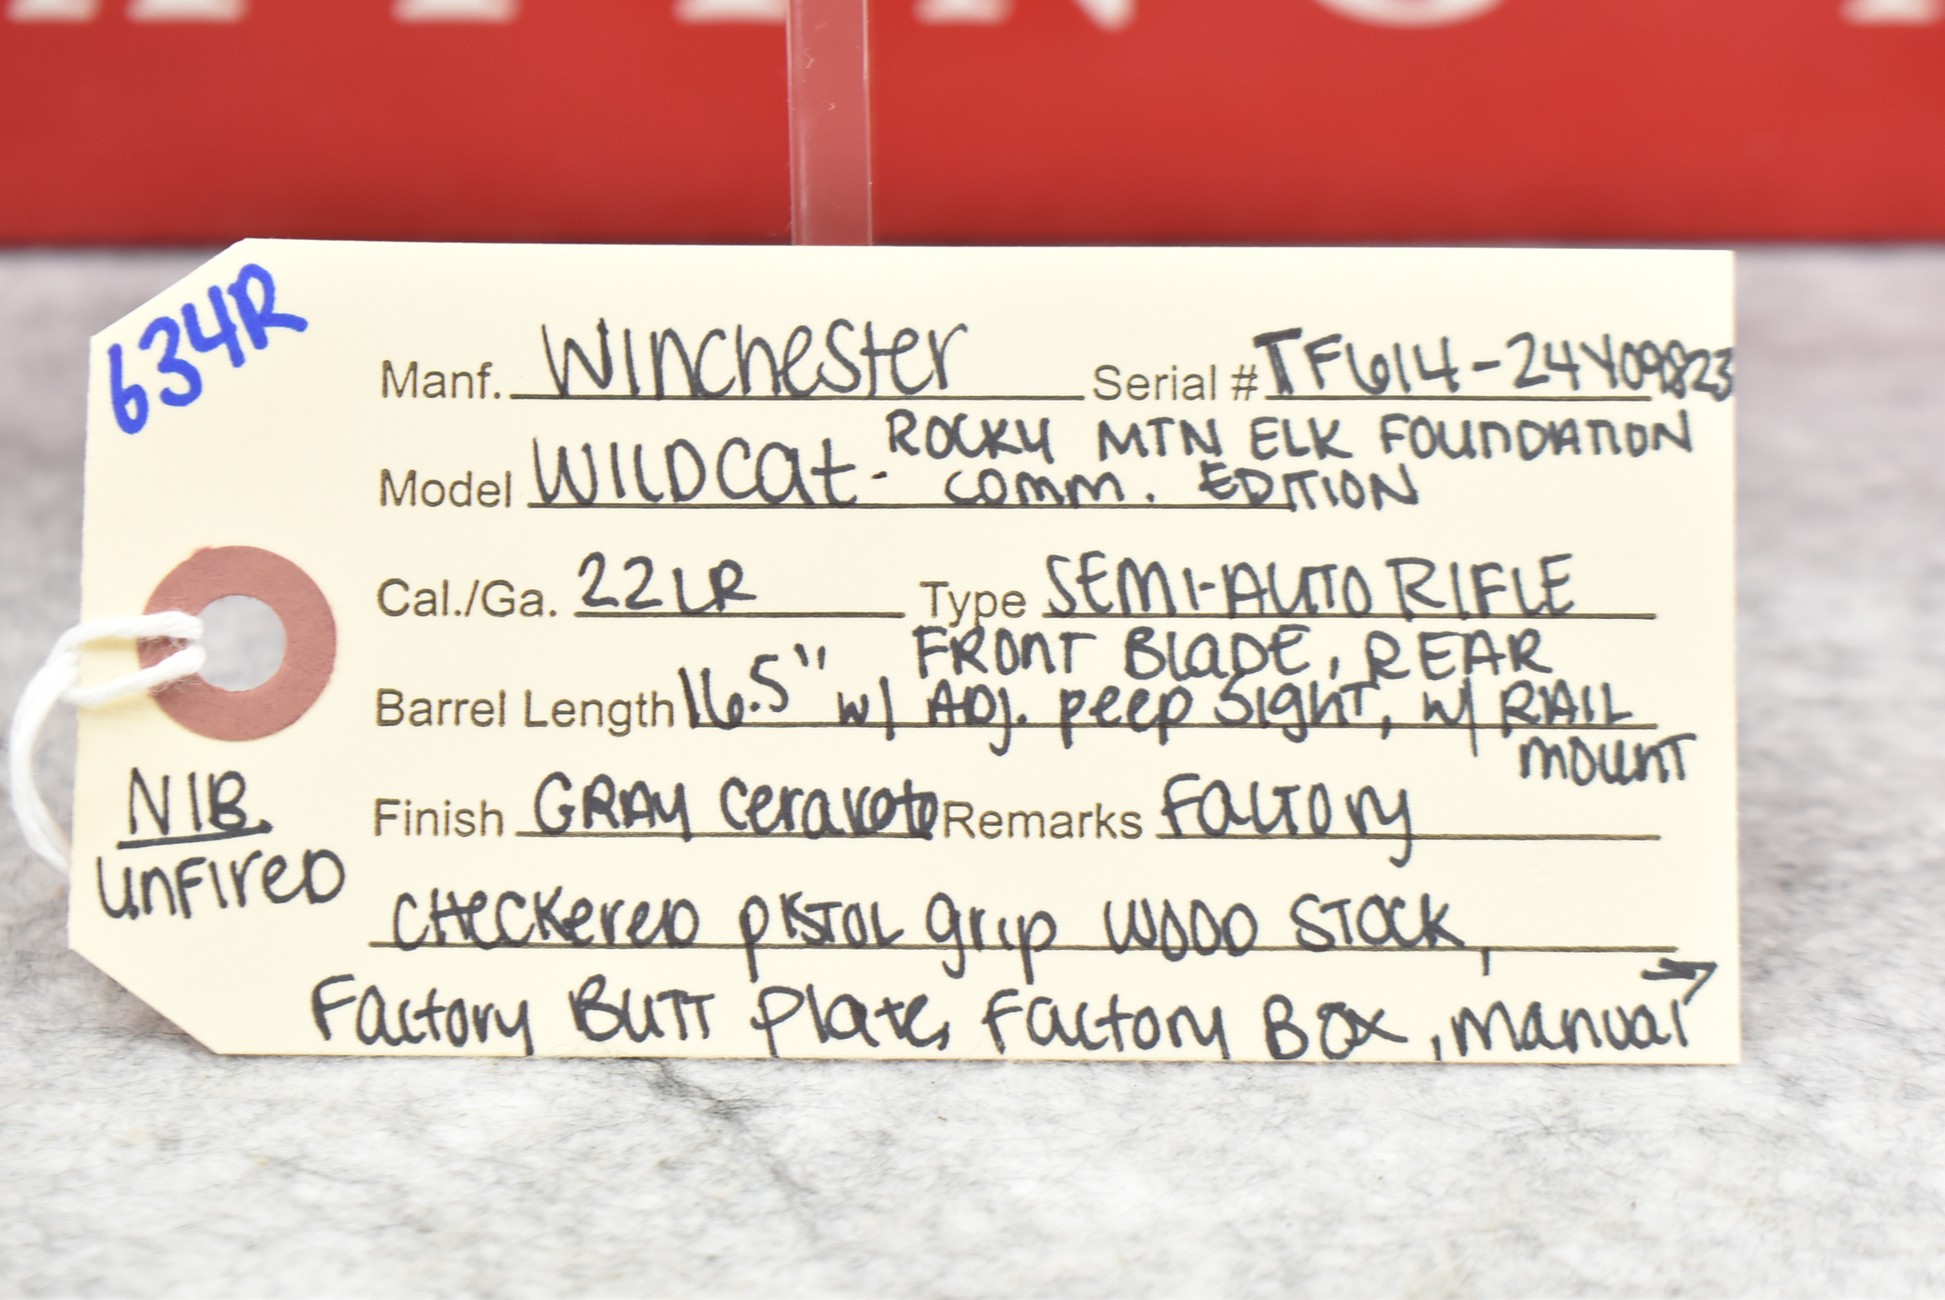 634R
Manf. Winchester Serial # TF614-24Y09823
ROCKY MTN ELK FOUNDATION
Model WILDCAT - COMM. EDITION
Cal./Ga. 22LR Type SEMI-AUTO RIFLE
FRONT BLADE, REAR
Barrel Length 16.5" w/ ADJ. peep sight, w/ RAIL
MOUNT
NIB.
UNFIRED
Finish GRAY Cerakote Remarks Factory
CHECKERED PISTOL grip WOOD STOCK,
Factory BUTT plate, Factory Box, Manual →